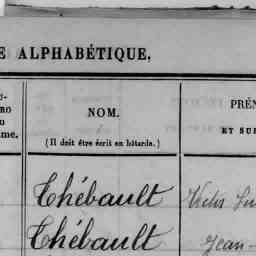 E ALPHABÉTIQUE.
NOM.
(Il doit être écrit en bâtarde.)
PRÉN
ET SUR
RO
u
me.
Thébault
Thébault
Jean-